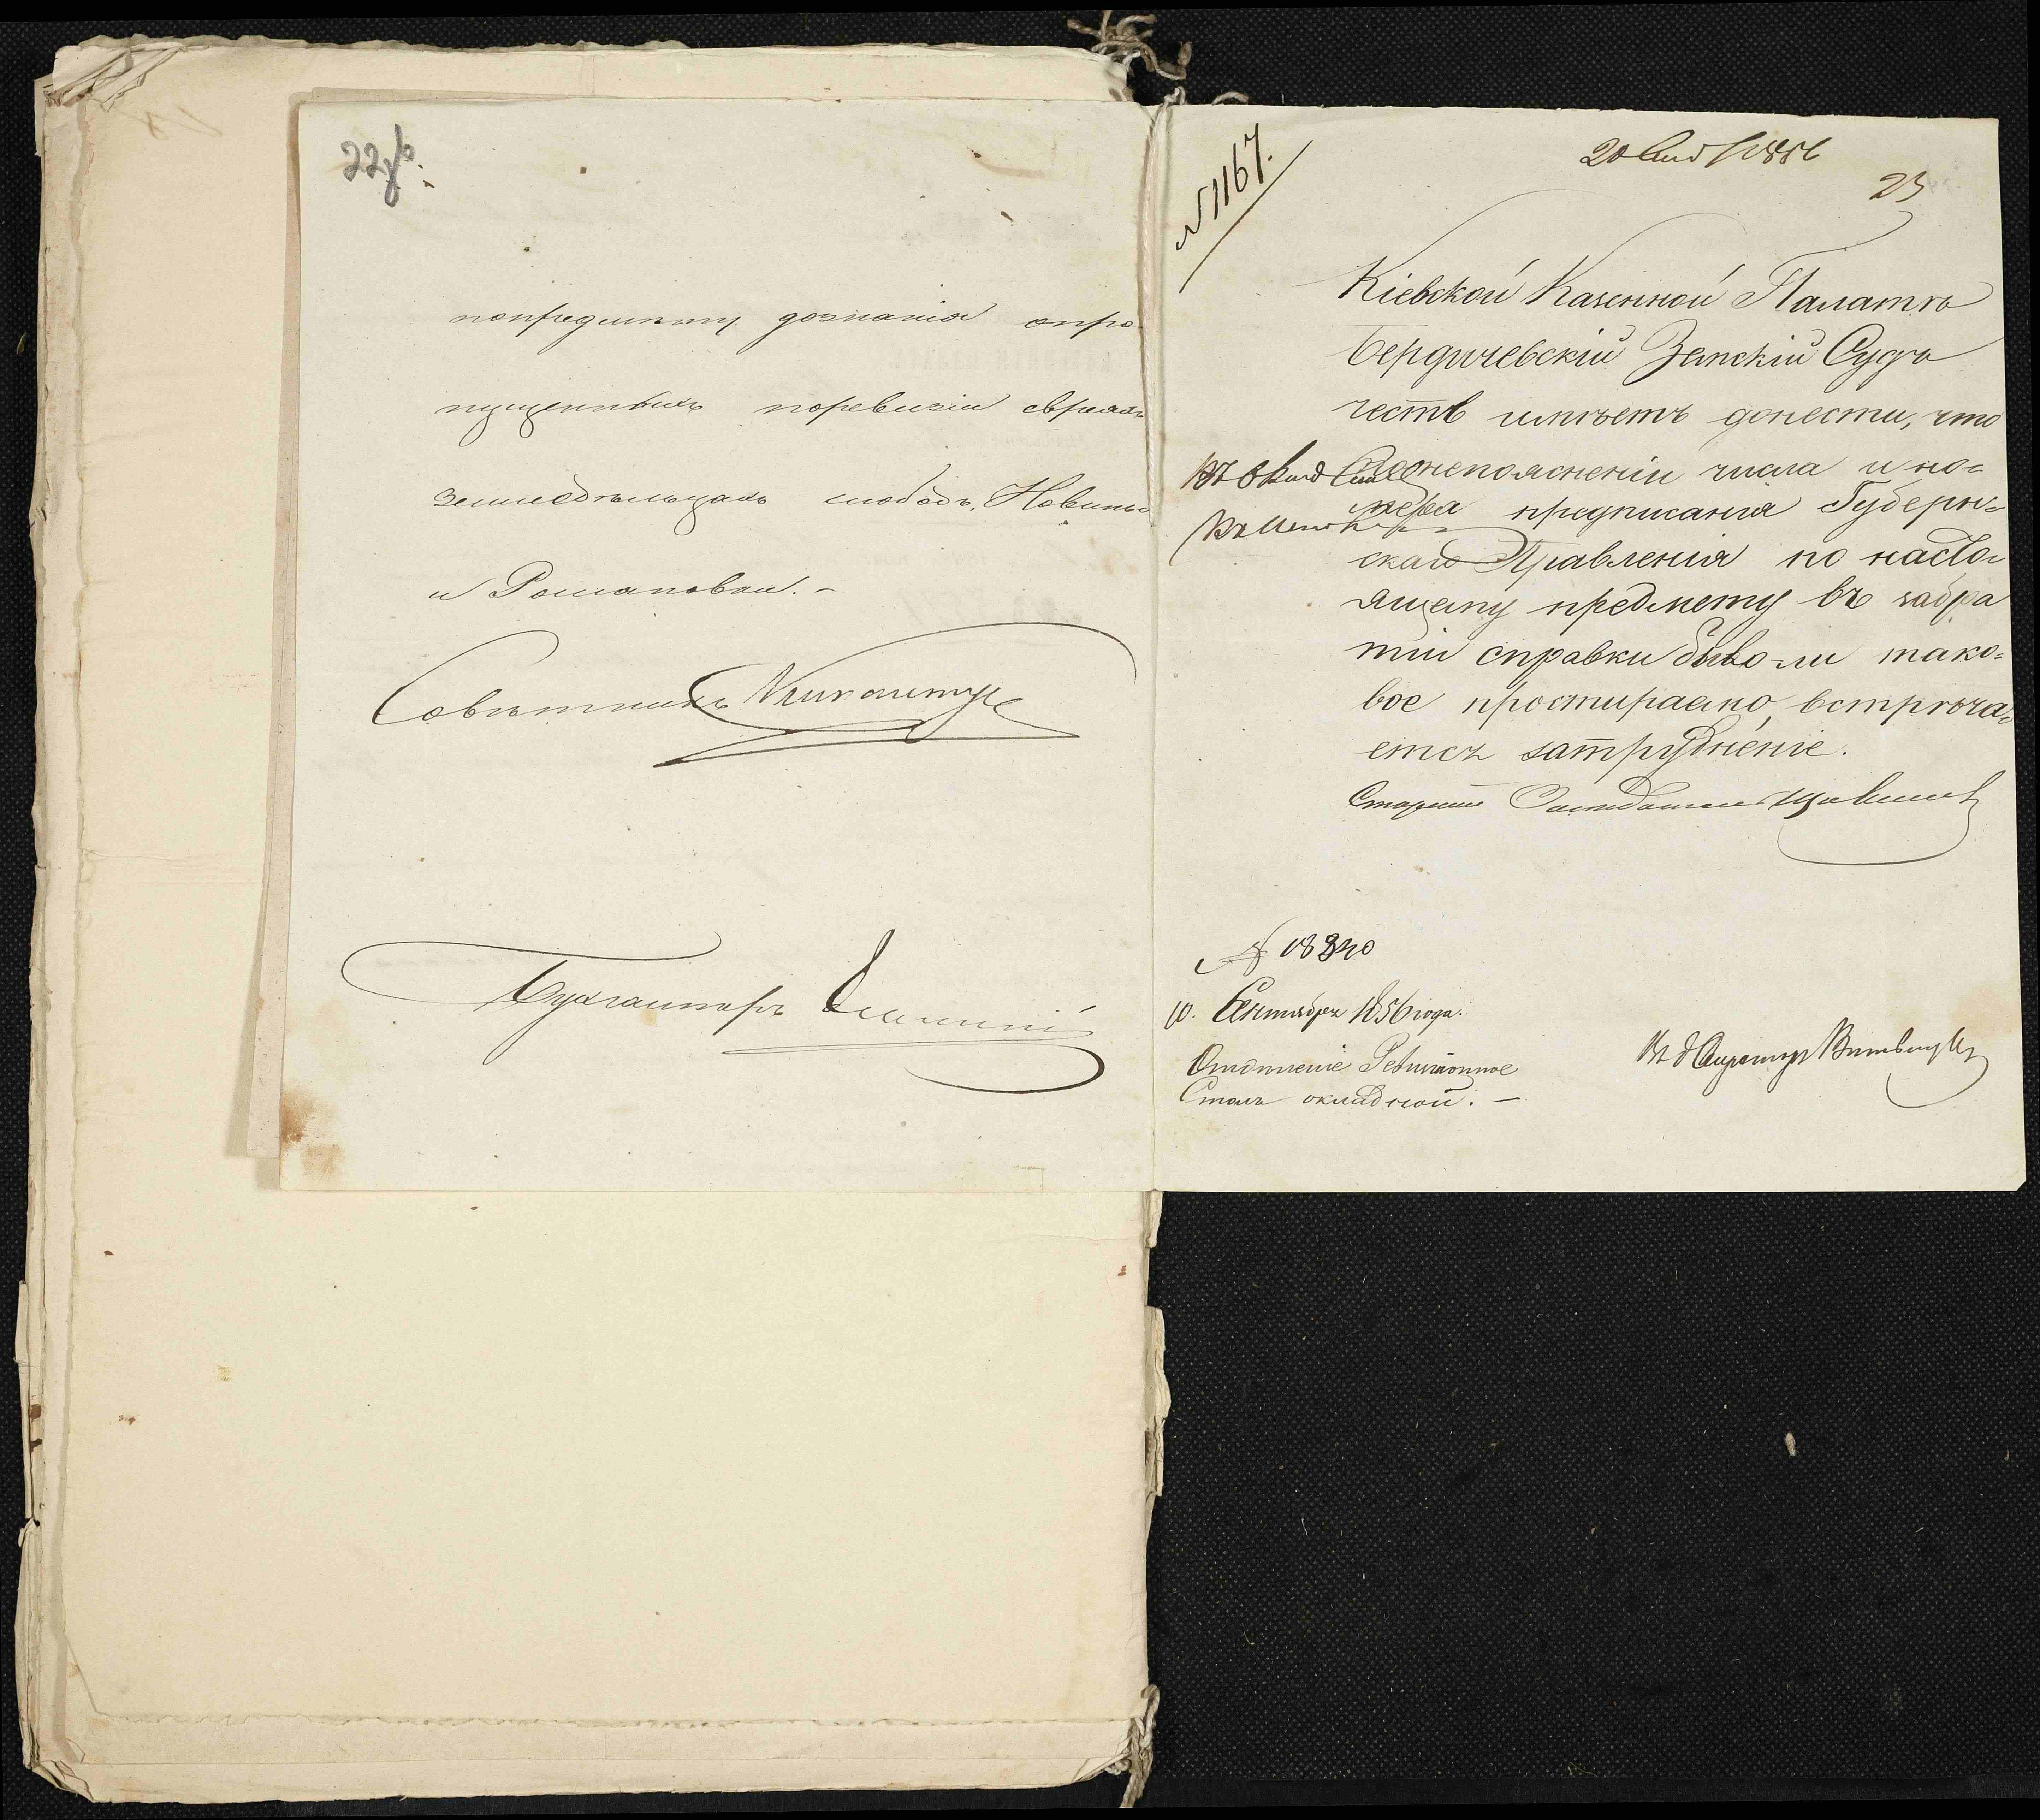 22об.
попредмету дознанія опро-
пущенныхъ поревизіи евреяхъ
земледѣльцахъ слободъ, Новины
и Романовки. -
Совѣтникъ
Бухгалтеръ
№ 1167.
20 Сент 1856
23
Кіевской Казенной Палатѣ
Бердичевскій Земскій Судъ
честь имѣетъ донести, что
понепоясненіи числа и но=
мера предписанія Губерн=
скаго Правленія по насто=
ящему предмету въ забра
тіи справки было-ли тако=
вое простираемо, встрѣча=
етсъ затрудненіе.
Старшій Засѣдатель
№ 18340
10. Сентября 1856 года.
Отдѣленіе Ревизіонное
Столъ окладной. -